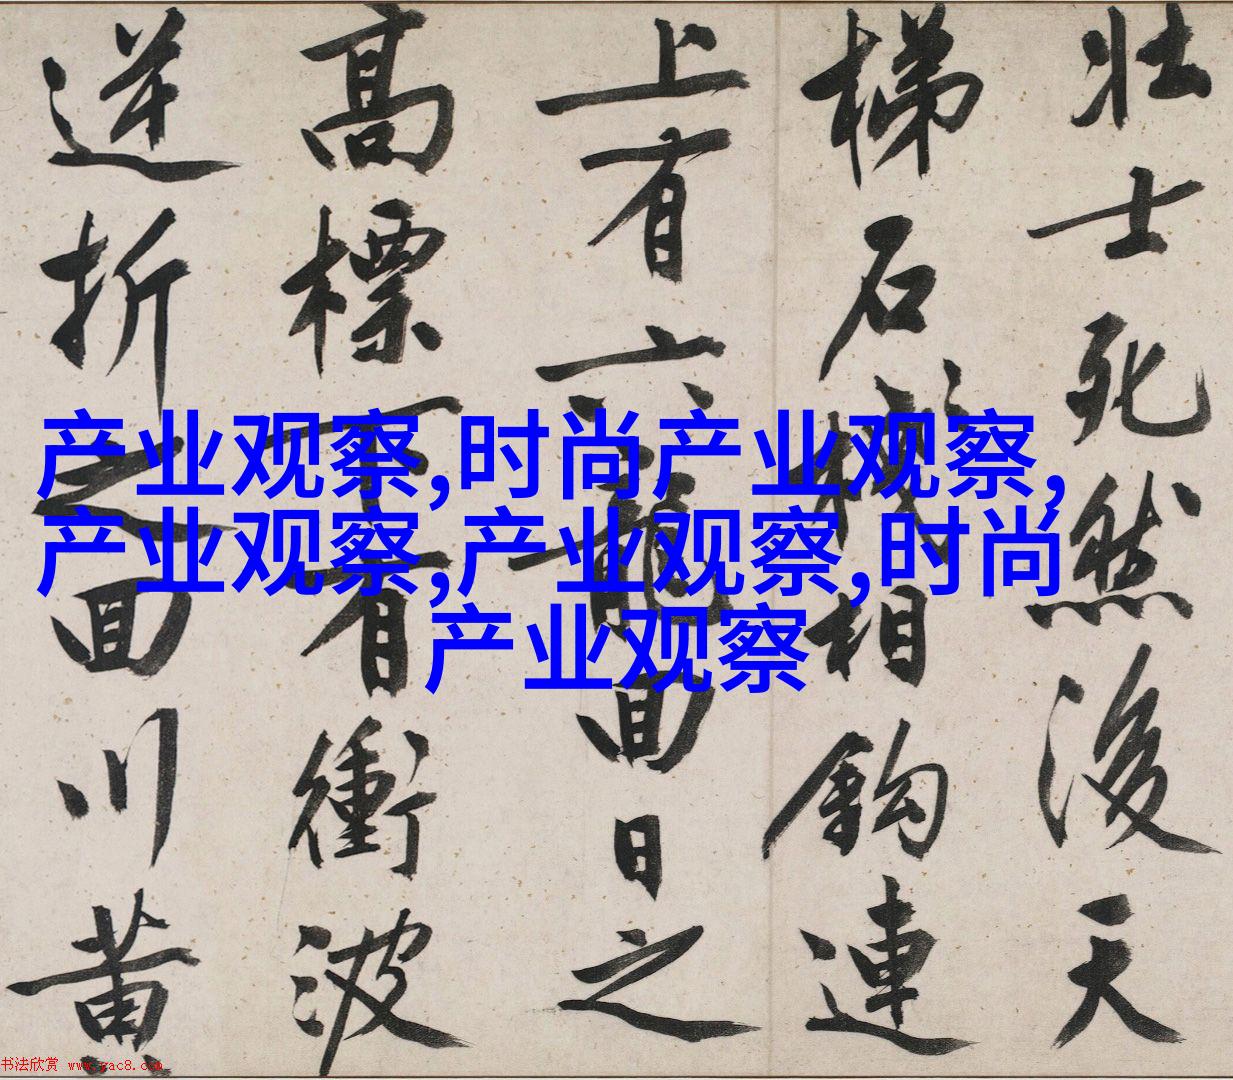 壮士死然後天
梯石棧相鉤連
上有六龍回日之
高標下有衝波
逆折之回川黄
产业观察,时尚产业观察,
产业观察,产业观察,时尚
产业观察
书法欣赏 www.yac8.com